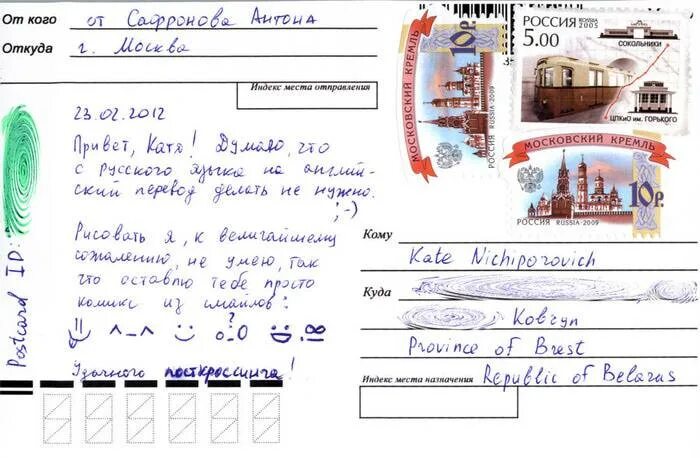 От кого от Сафронова Антона
Откуда г. Москва
Индекс места отправления
23.02.2012
Привет, Катя! Думаю, что
с русского языка на англий-
ский перевод делать не нужно.
;-)
Рисовать я, к величайшему
сожалению, не умею, так
что оставлю тебе просто
комикс из смайлов:
^_^ о_О ?
Удачного посткроссинга!
Postcard ID:
МОСКОВСКИЙ КРЕМЛЬ
10р.
РОССИЯ RUSSIA•2009
РОССИЯ ROSSIA 2005
5.00
СОКОЛЬНИКИ
ЦПКиО ИМ. ГОРЬКОГО
МОСКОВСКИЙ КРЕМЛЬ
10р.
РОССИЯ RUSSIA•2009
Кому
Kate Nichiporovich
Куда
Kobryn
Province of Brest
Индекс места назначения Republic of Belarus